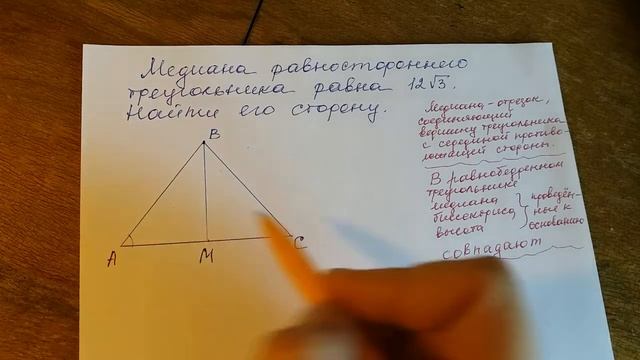 Медиана равностороннего
треугольника равна 12√3.
Найти его сторону.
Медиана-отрезок,
соединяющий
вершину треугольника
с серединой противо-
лежащей стороны.
В равнобедренном
треугольнике
медиана
биссектриса
высота
проведён-
ные к
основанию
совпадают
B
A
M
C